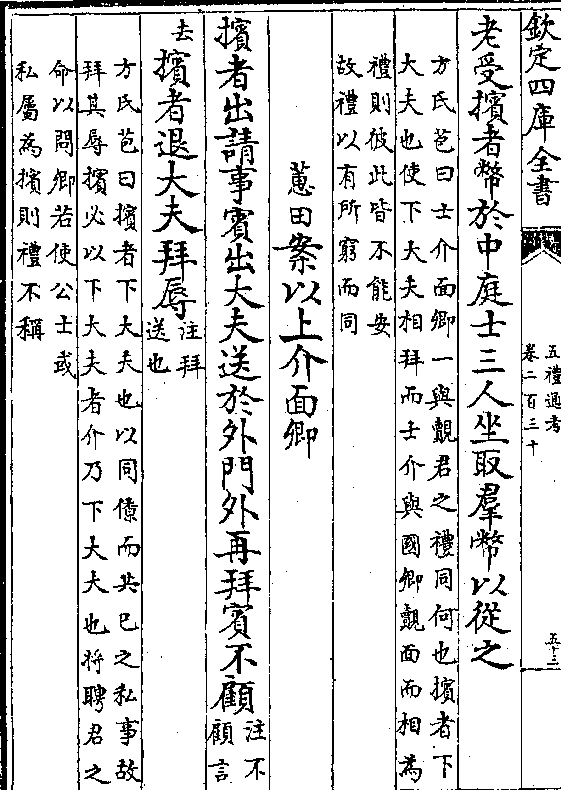 欽定四庫全書
五禮通考
卷二百三十
五十三
老受擯者幣於中庭士三人坐取羣幣以從之
方氏苞曰士介面卿一與覿君之禮同何也擯者下
大夫也使下大夫相拜而士介與國卿覿面而相為
禮則彼此皆不能安
故禮以有所窮而同
蕙田案以上介面卿
擯者出請事賓出大夫送於外門外再拜賓不顧
注不
顧言
去
擯者退大夫拜辱
注拜
送也
方氏苞曰擯者下大夫也以同僚而共已之私事故
拜其辱擯必以下大夫者介乃下大夫也將聘君之
命以問卿若使公士或
私屬為擯則禮不稱